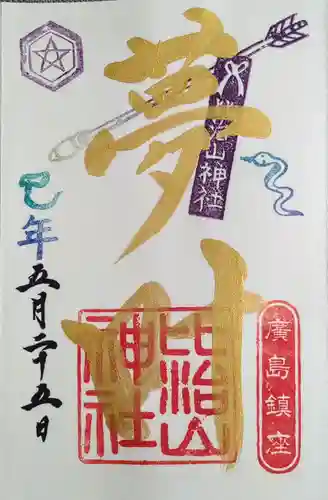 夢叶
比治山神社
廣島鎮座
比治山
神社
巳年
五月二十五日